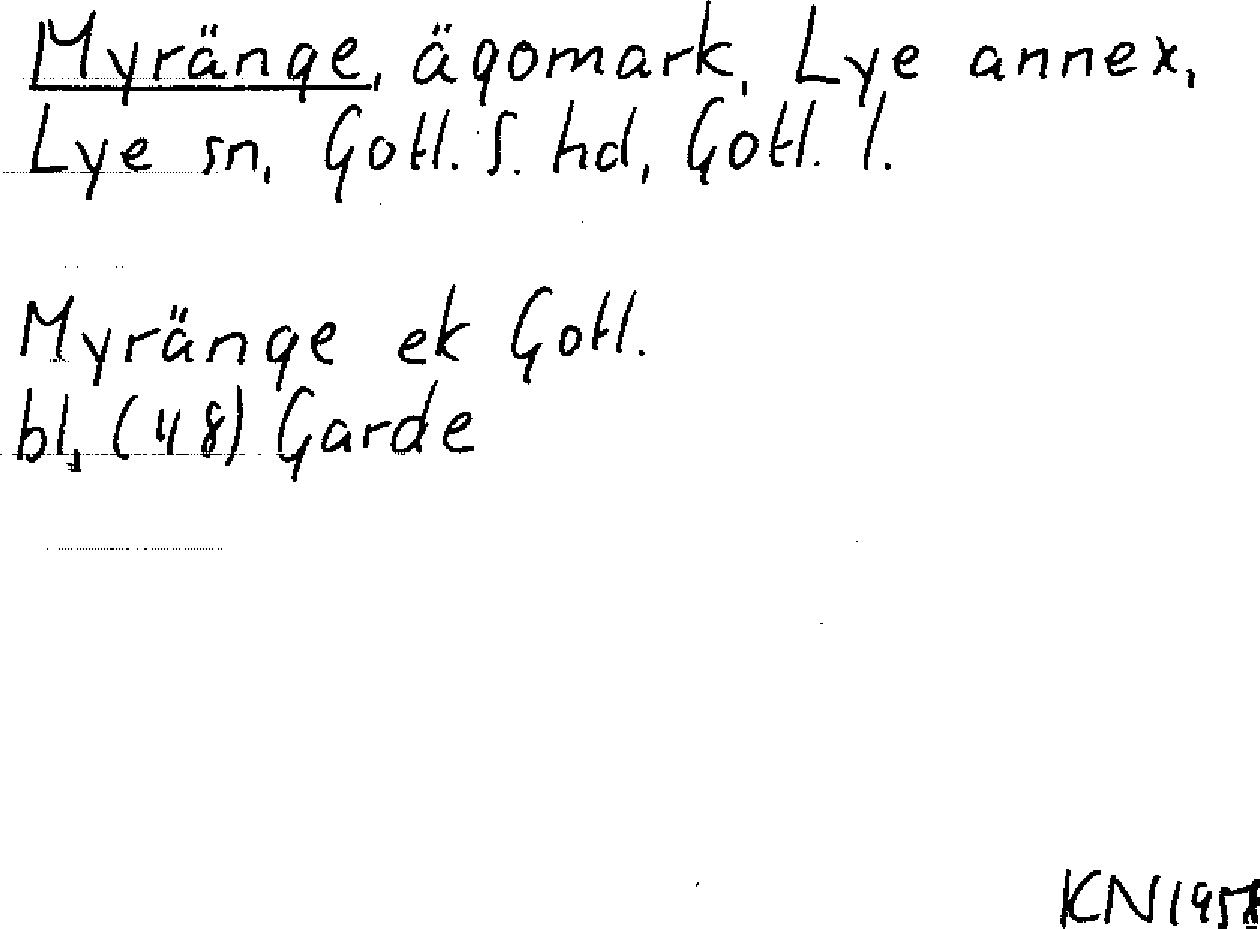 Myränge, ägomark, Lye annex,
Lye sn, Gotl. S. hd, Gotl. l.
Myränge ek Gotl.
bl, (48) Garde
KN 1958